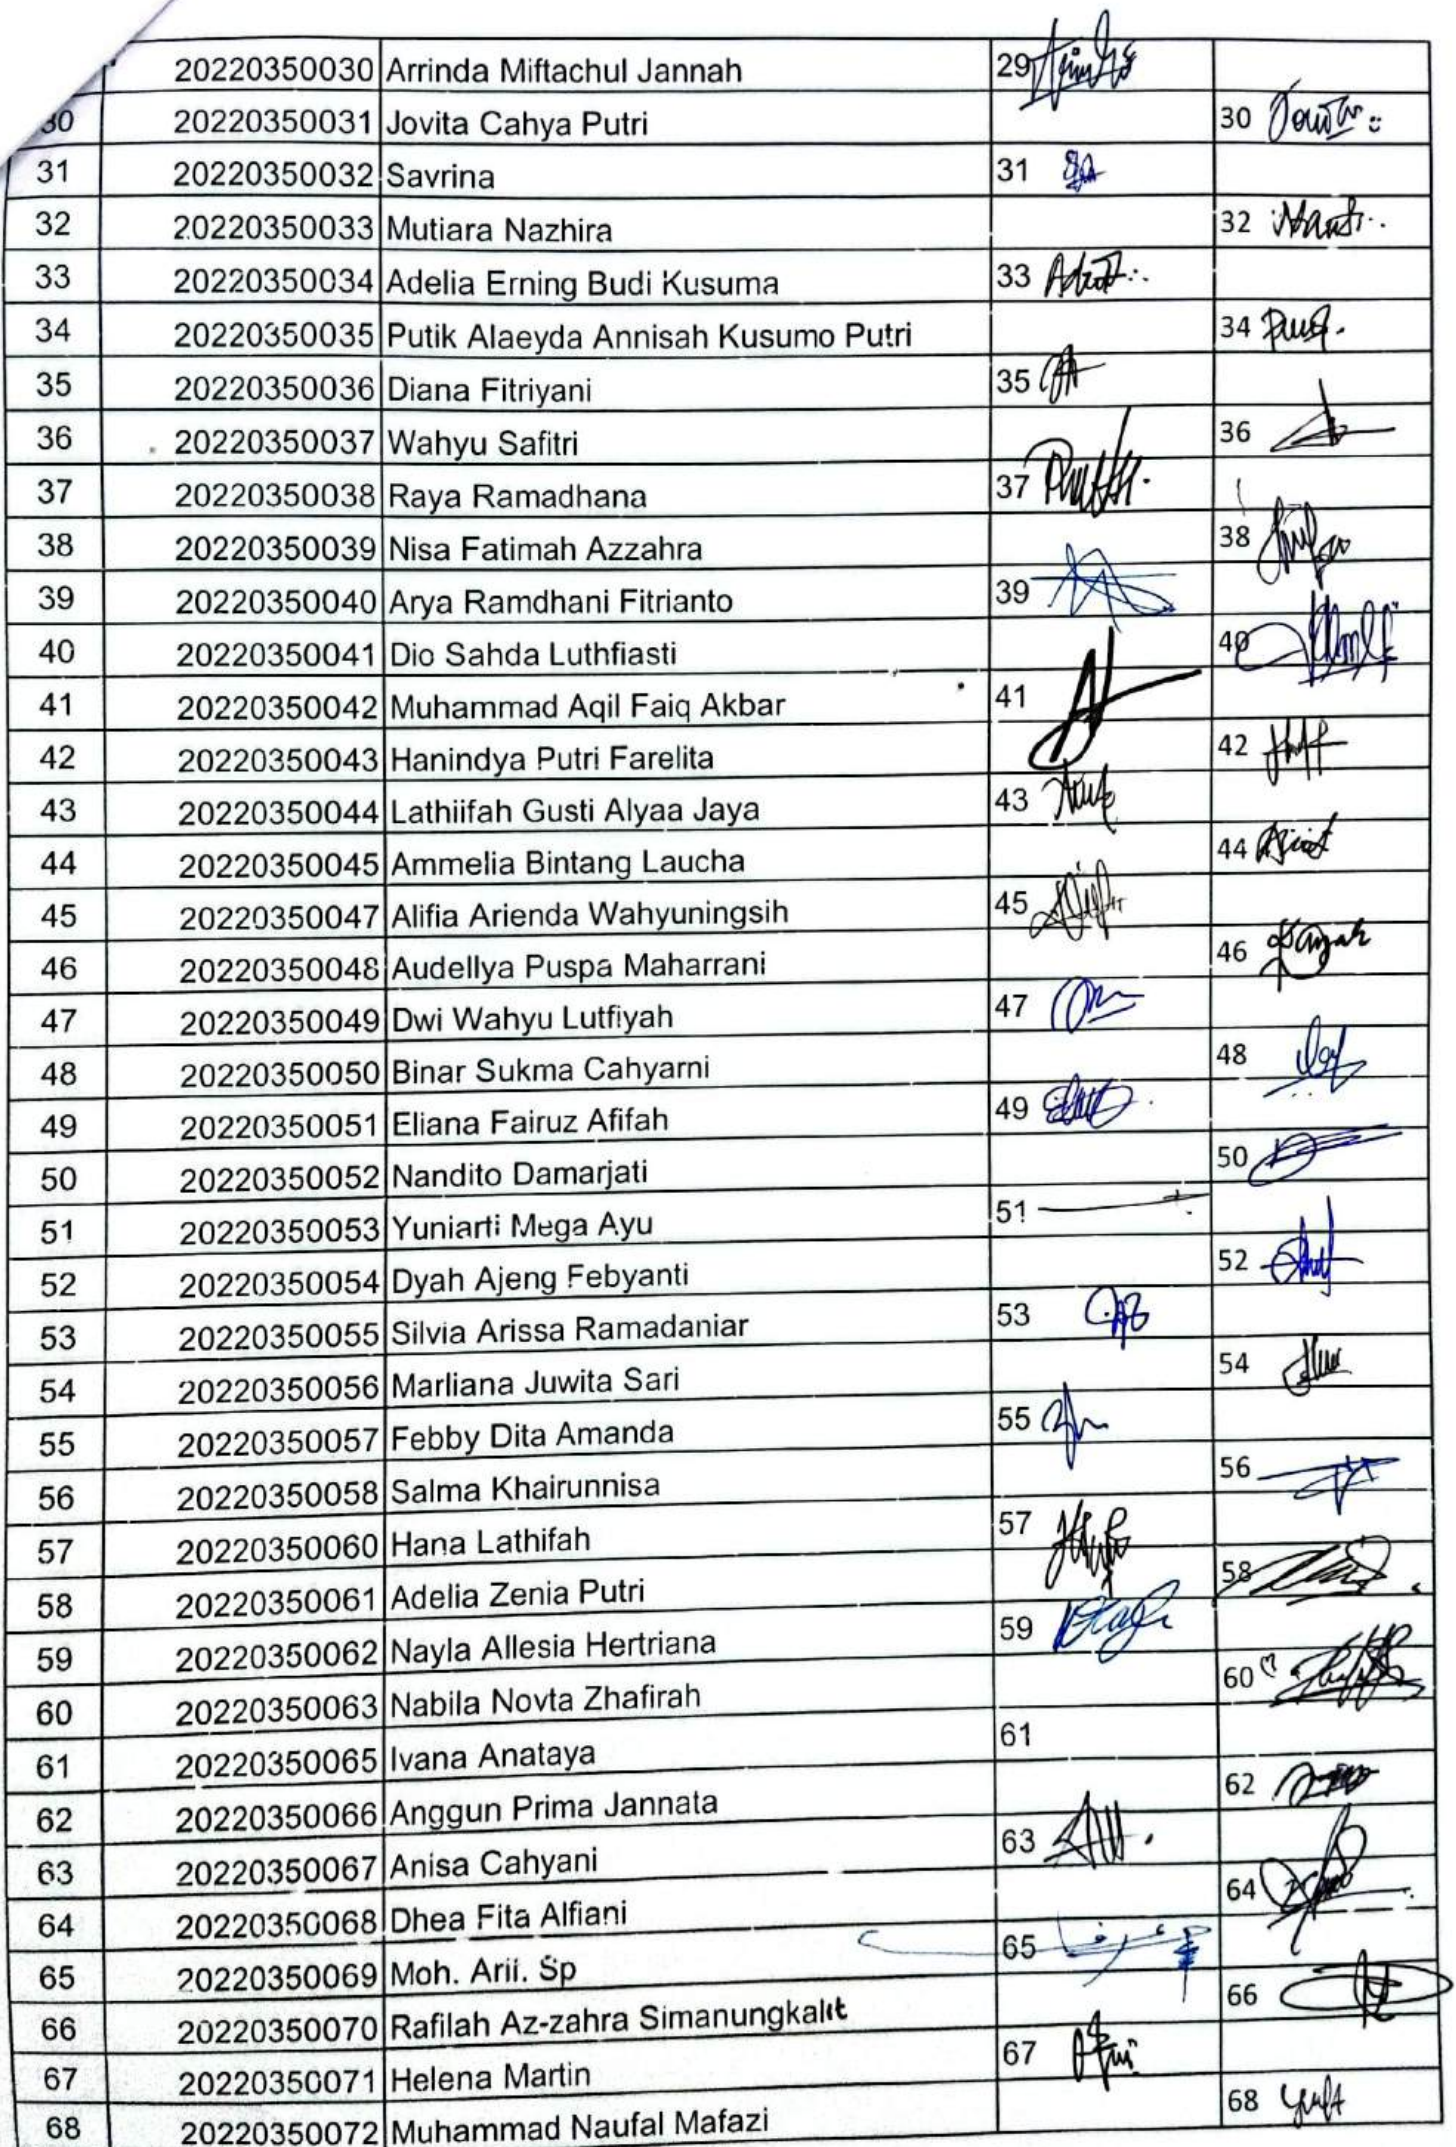 20220350030 Arrinda Miftachul Jannah 29
30 20220350031 Jovita Cahya Putri 30
31 20220350032 Savrina 31
32 20220350033 Mutiara Nazhira 32
33 20220350034 Adelia Erning Budi Kusuma 33
34 20220350035 Putik Alaeyda Annisah Kusumo Putri 34
35 20220350036 Diana Fitriyani 35
36 20220350037 Wahyu Safitri 36
37 20220350038 Raya Ramadhana 37
38 20220350039 Nisa Fatimah Azzahra 38
39 20220350040 Arya Ramdhani Fitrianto 39
40 20220350041 Dio Sahda Luthfiasti 40
41 20220350042 Muhammad Aqil Faiq Akbar 41
42 20220350043 Hanindya Putri Farelita 42
43 20220350044 Lathiifah Gusti Alyaa Jaya 43
44 20220350045 Ammelia Bintang Laucha 44
45 20220350047 Alifia Arienda Wahyuningsih 45
46 20220350048 Audellya Puspa Maharrani 46
47 20220350049 Dwi Wahyu Lutfiyah 47
48 20220350050 Binar Sukma Cahyarni 48
49 20220350051 Eliana Fairuz Afifah 49
50 20220350052 Nandito Damarjati 50
51 20220350053 Yuniarti Mega Ayu 51
52 20220350054 Dyah Ajeng Febyanti 52
53 20220350055 Silvia Arissa Ramadaniar 53
54 20220350056 Marliana Juwita Sari 54
55 20220350057 Febby Dita Amanda 55
56 20220350058 Salma Khairunnisa 56
57 20220350060 Hana Lathifah 57
58 20220350061 Adelia Zenia Putri 58
59 20220350062 Nayla Allesia Hertriana 59
60 20220350063 Nabila Novta Zhafirah 60
61 20220350065 Ivana Anataya 61
62 20220350066 Anggun Prima Jannata 62
63 20220350067 Anisa Cahyani 63
64 20220350068 Dhea Fita Alfiani 64
65 20220350069 Moh. Sp 65
66 20220350070 Rafilah Az-zahra Simanungkalit 66
67 20220350071 Helena Martin 67
68 20220350072 Muhammad Naufal Mafazi 68